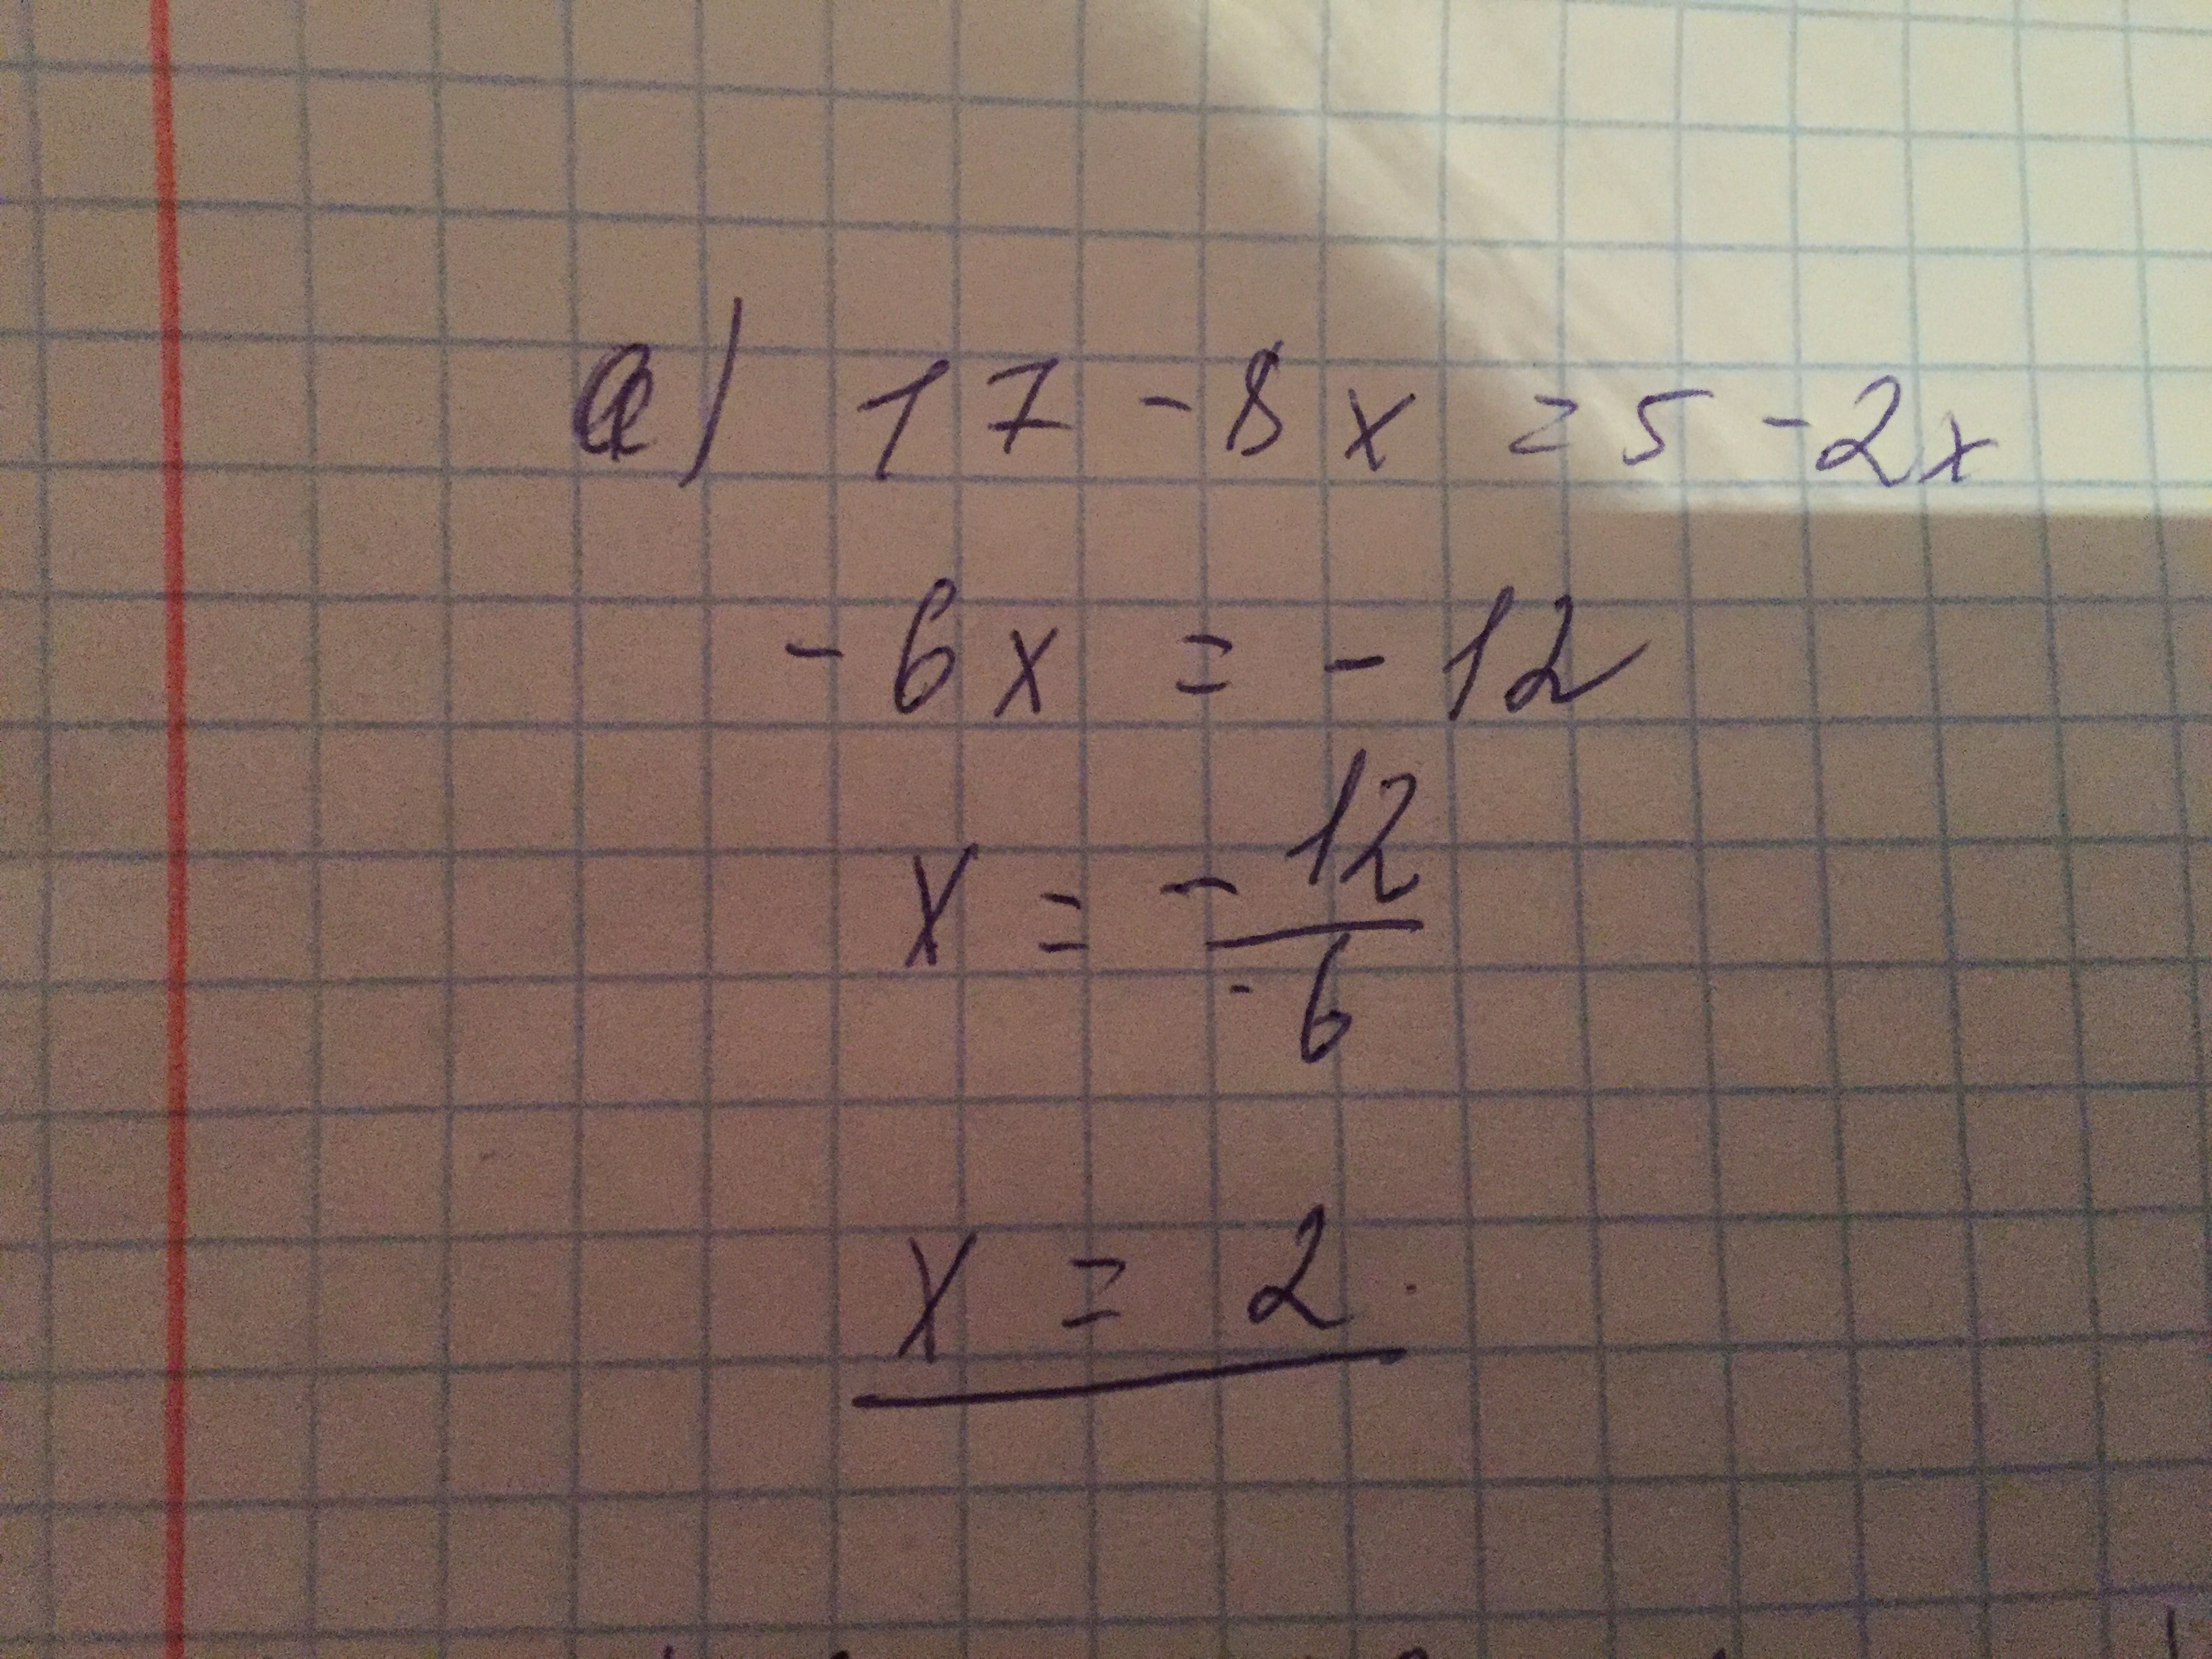 a) 17 - 8x = 5 - 2x
-6x = -12
x = -12/-6
x = 2